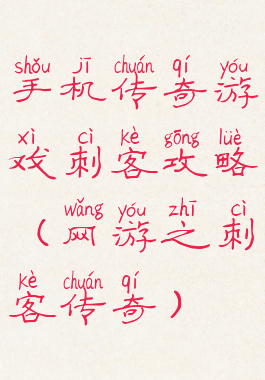 shǒu jī chuán qí yóu
手机传奇游
xì cì kè gōng lüè
戏刺客攻略
wǎng yóu zhī cì
（网游之刺
kè chuán qí
客传奇）